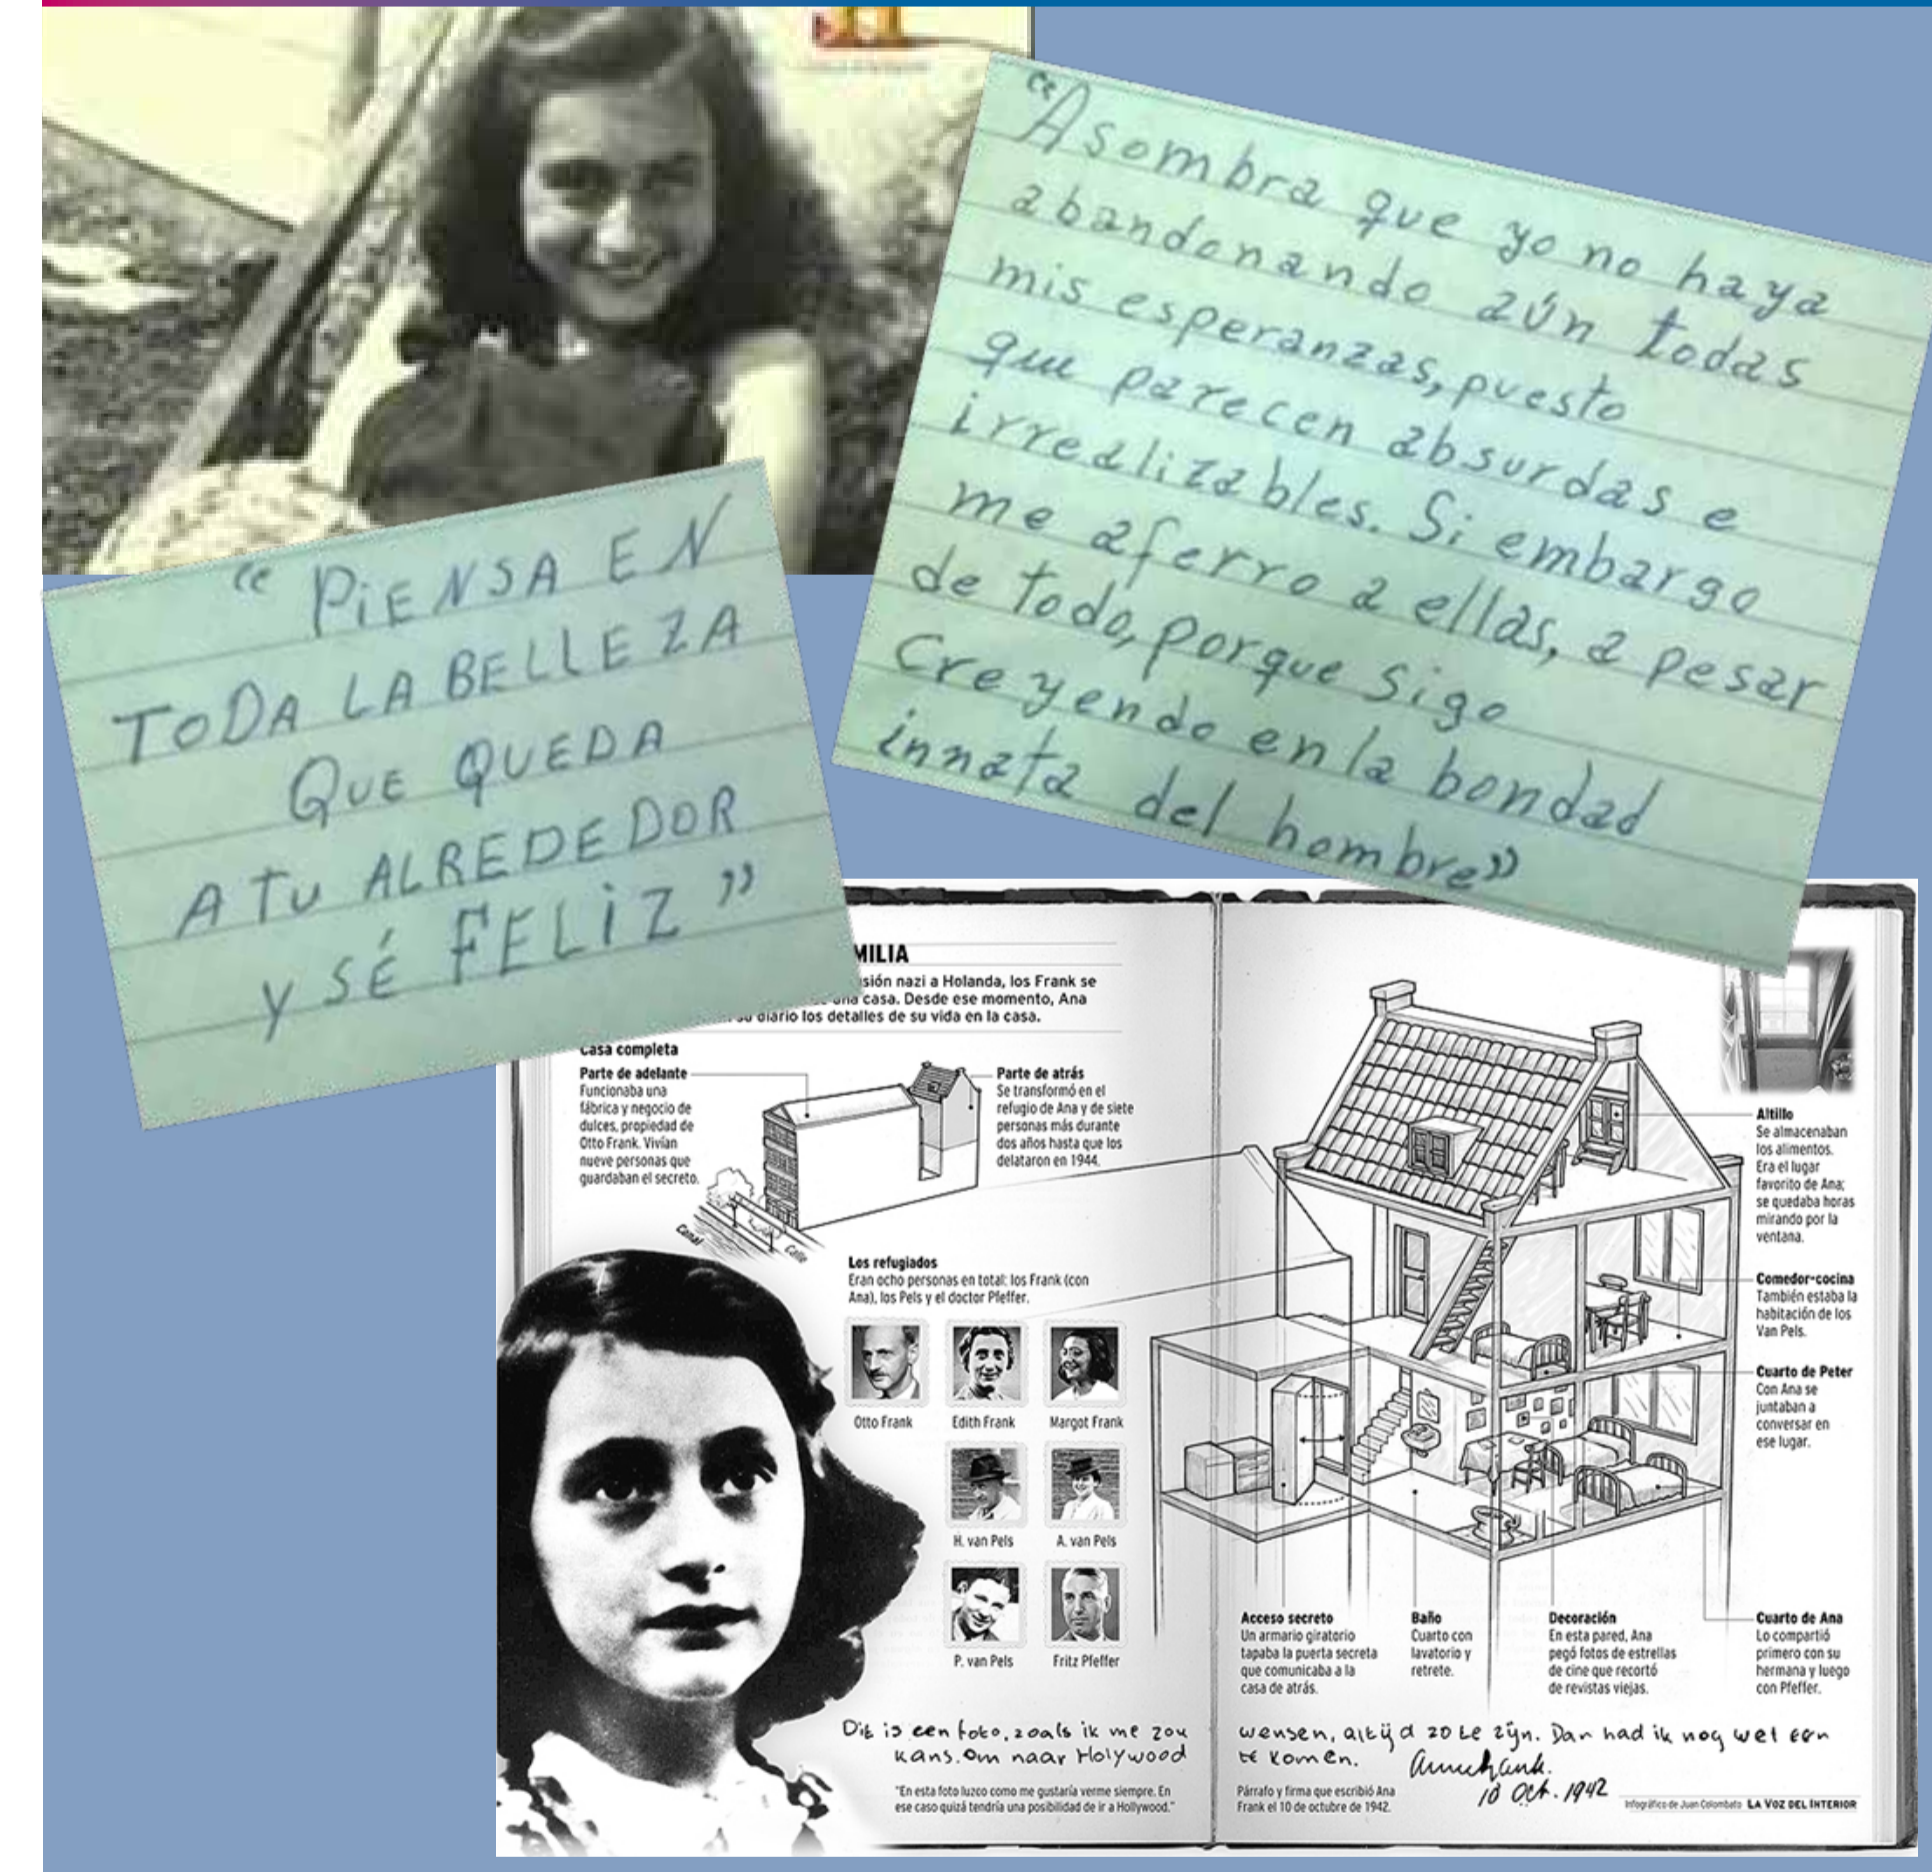 “Asombra que yo no haya
abandonando aún todas
mis esperanzas, puesto
que parecen absurdas e
irrealizables. Si embargo
me aferro a ellas, a pesar
de todo, porque sigo
Creyendo en la bondad
innata del hombre”
“PiENSA EN
TODA LA BELLEZA
QUE QUEDA
A TU ALREDEDOR
Y SÉ FELiZ”
MILIA
sión nazi a Holanda, los Frank se
una casa. Desde ese momento, Ana
su diario los detalles de su vida en la casa.
Casa completa
Parte de adelante
Funcionaba una
fábrica y negocio de
dulces, propiedad de
Otto Frank. Vivían
nueve personas que
guardaban el secreto.
Parte de atrás
Se transformó en el
refugio de Ana y de siete
personas más durante
dos años hasta que los
delataron en 1944.
Canal
Calle
Los refugiados
Eran ocho personas en total: los Frank (con
Ana), los Pels y el doctor Pfeffer.
Otto Frank
Edith Frank
Margot Frank
H. van Pels
A. van Pels
P. van Pels
Fritz Pfeffer
Altillo
Se almacenaban
los alimentos.
Era el lugar
favorito de Ana;
se quedaba horas
mirando por la
ventana.
Comedor-cocina
También estaba la
habitación de los
Van Pels.
Cuarto de Peter
Con Ana se
juntaban a
conversar en
ese lugar.
Acceso secreto
Un armario giratorio
tapaba la puerta secreta
que comunicaba a la
casa de atrás.
Baño
Cuarto con
lavatorio y
retrete.
Decoración
En esta pared, Ana
pegó fotos de estrellas
de cine que recortó
de revistas viejas.
Cuarto de Ana
Lo compartió
primero con su
hermana y luego
con Pfeffer.
Dit is een foto, zoals ik me zou
wensen, altijd zo te zijn. Dan had ik nog wel een
kans om naar Holywood
te komen.
Annefrank.
10 Oct. 1942
"En esta foto luzco como me gustaría verme siempre. En
ese caso quizá tendría una posibilidad de ir a Hollywood."
Párrafo y firma que escribió Ana
Frank el 10 de octubre de 1942.
Infográfico de Juan Colombato LA VOZ DEL INTERIOR